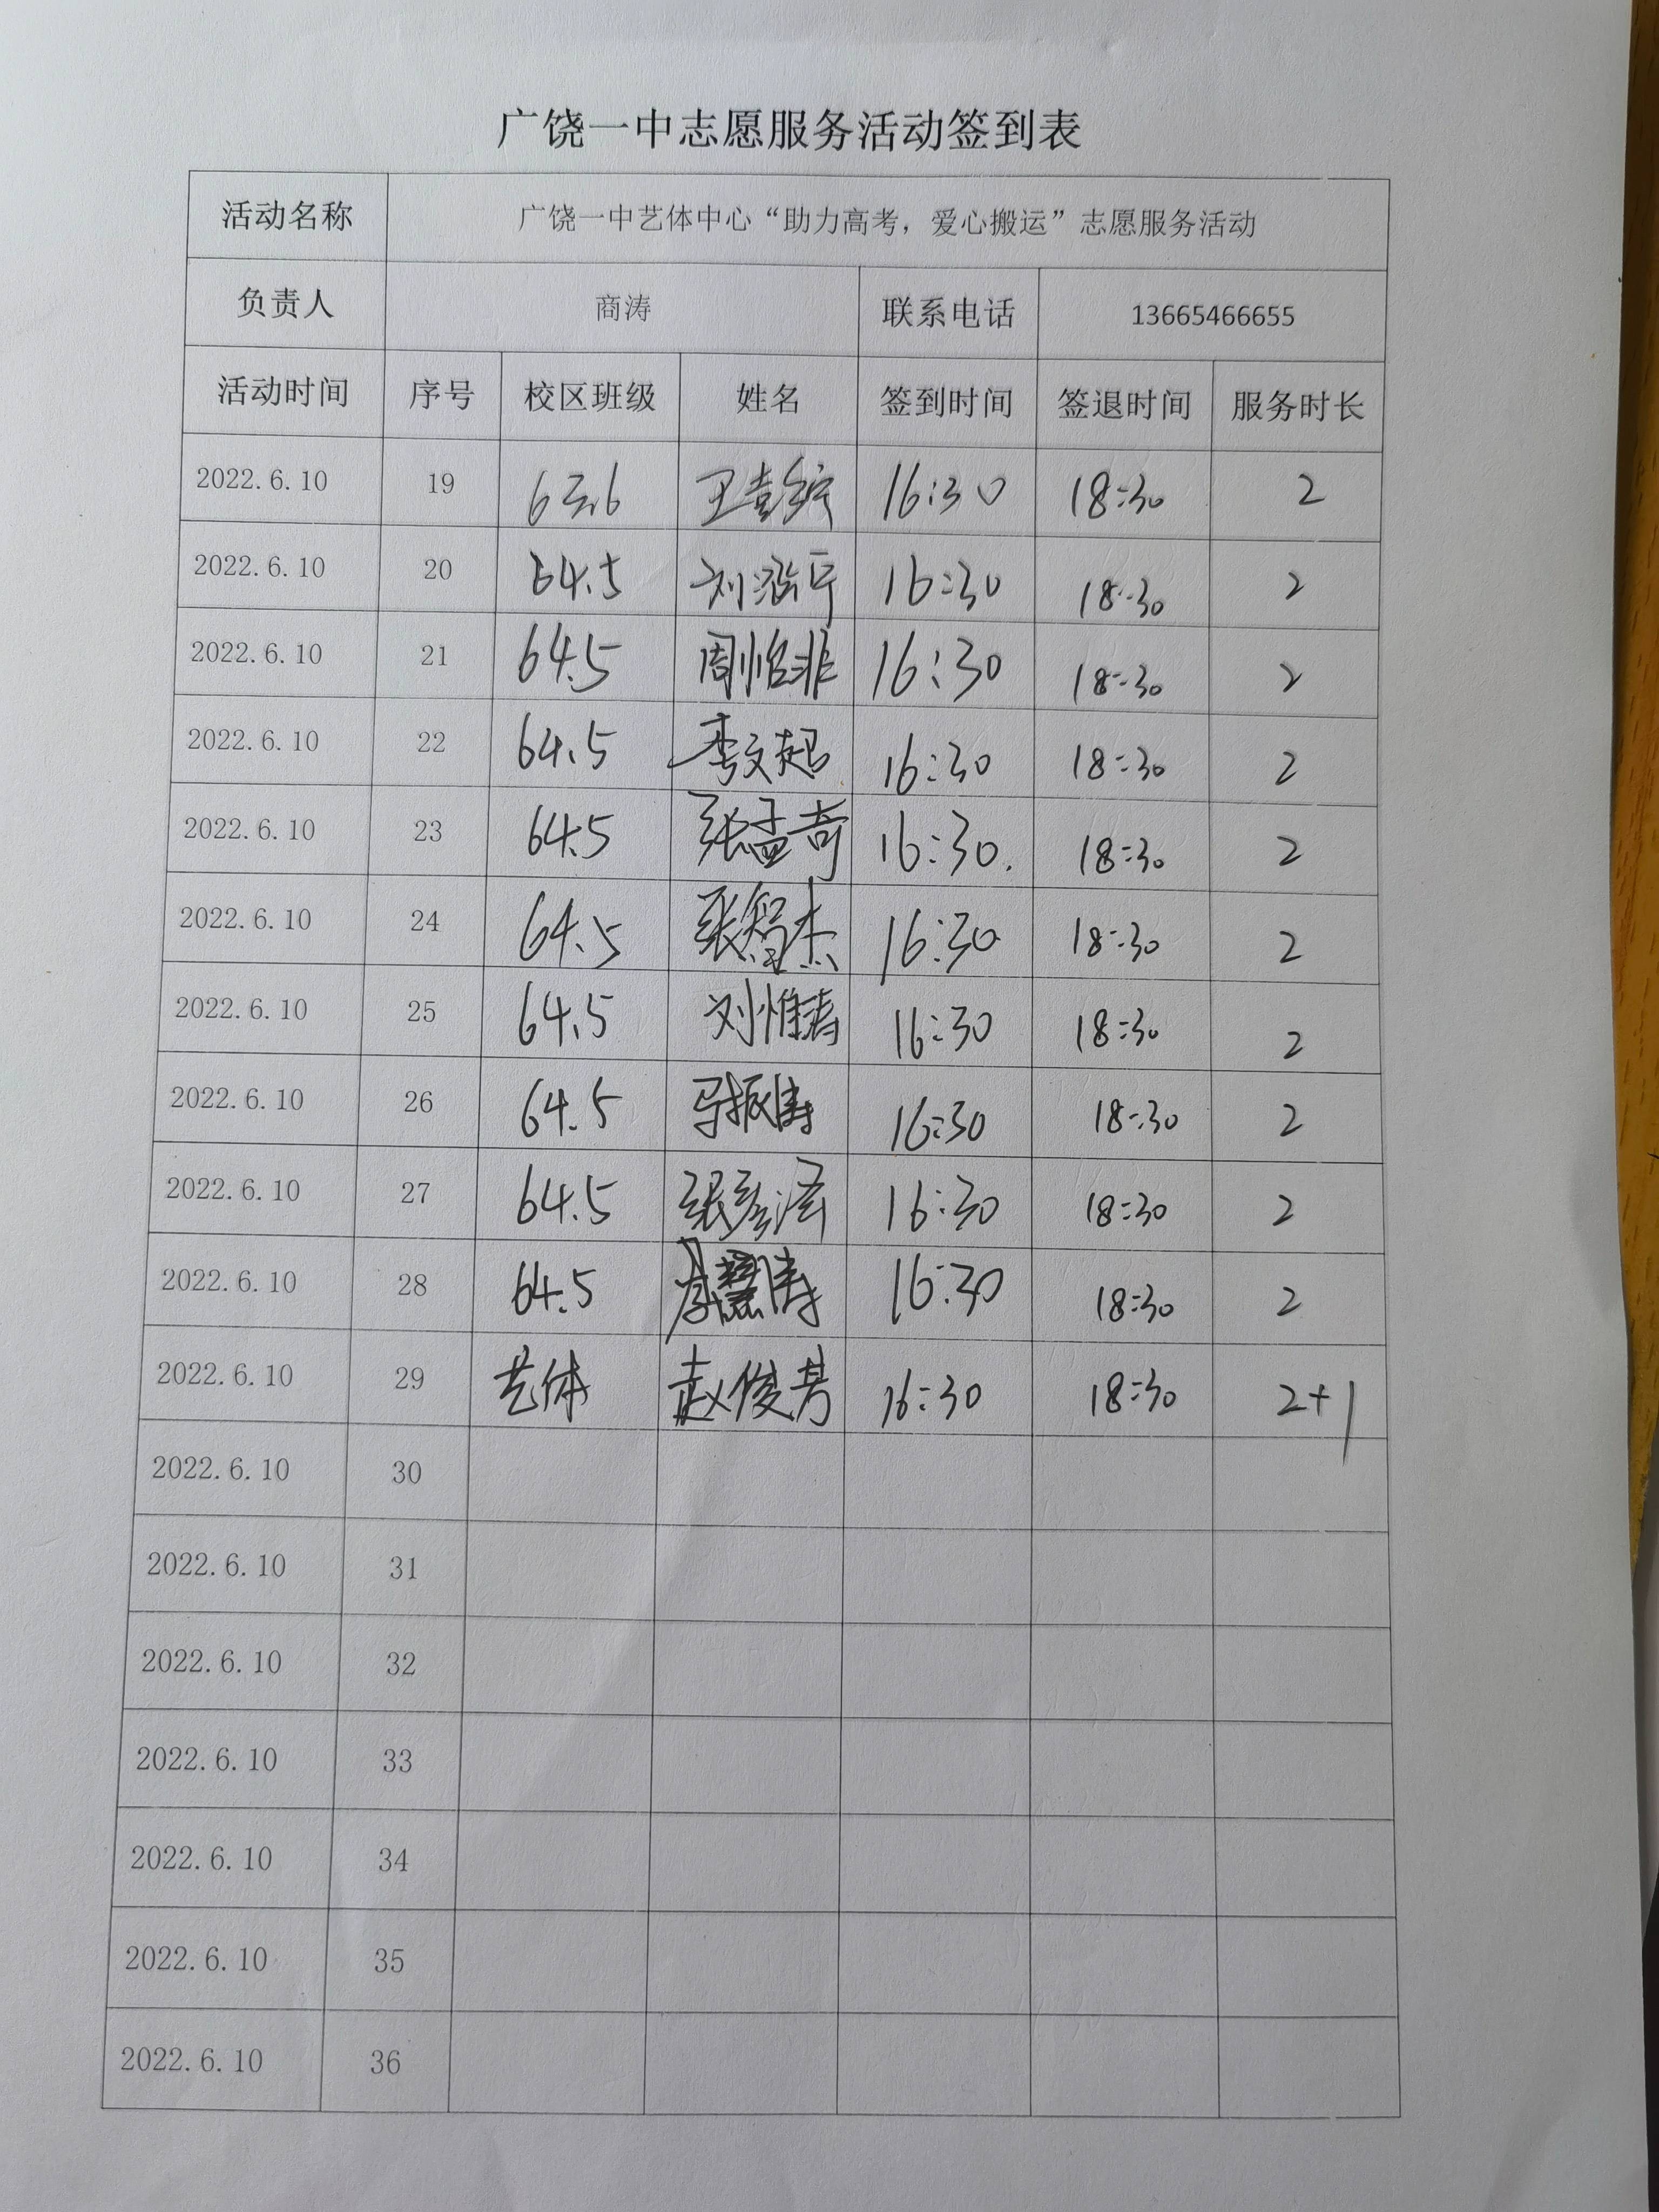 广饶一中志愿服务活动签到表
活动名称 广饶一中艺体中心“助力高考，爱心搬运”志愿服务活动
负责人 商涛 联系电话 13665466655
活动时间 序号 校区班级 姓名 签到时间 签退时间 服务时长
2022.6.10 19 63.6 王 16:30 18:30 2
2022.6.10 20 64.5 刘 16:30 18:30 2
2022.6.10 21 64.5 周怡非 16:30 18:30 2
2022.6.10 22 64.5 李文起 16:30 18:30 2
2022.6.10 23 64.5 张孟奇 16:30. 18:30 2
2022.6.10 24 64.5 张智杰 16:30 18:30 2
2022.6.10 25 64.5 刘惟涛 16:30 18:30 2
2022.6.10 26 64.5 马振涛 16:30 18:30 2
2022.6.10 27 64.5 张彦泽 16:30 18:30 2
2022.6.10 28 64.5 涛 16:30 18:30 2
2022.6.10 29 艺体 赵俊芳 16:30 18:30 2+1
2022.6.10 30
2022.6.10 31
2022.6.10 32
2022.6.10 33
2022.6.10 34
2022.6.10 35
2022.6.10 36